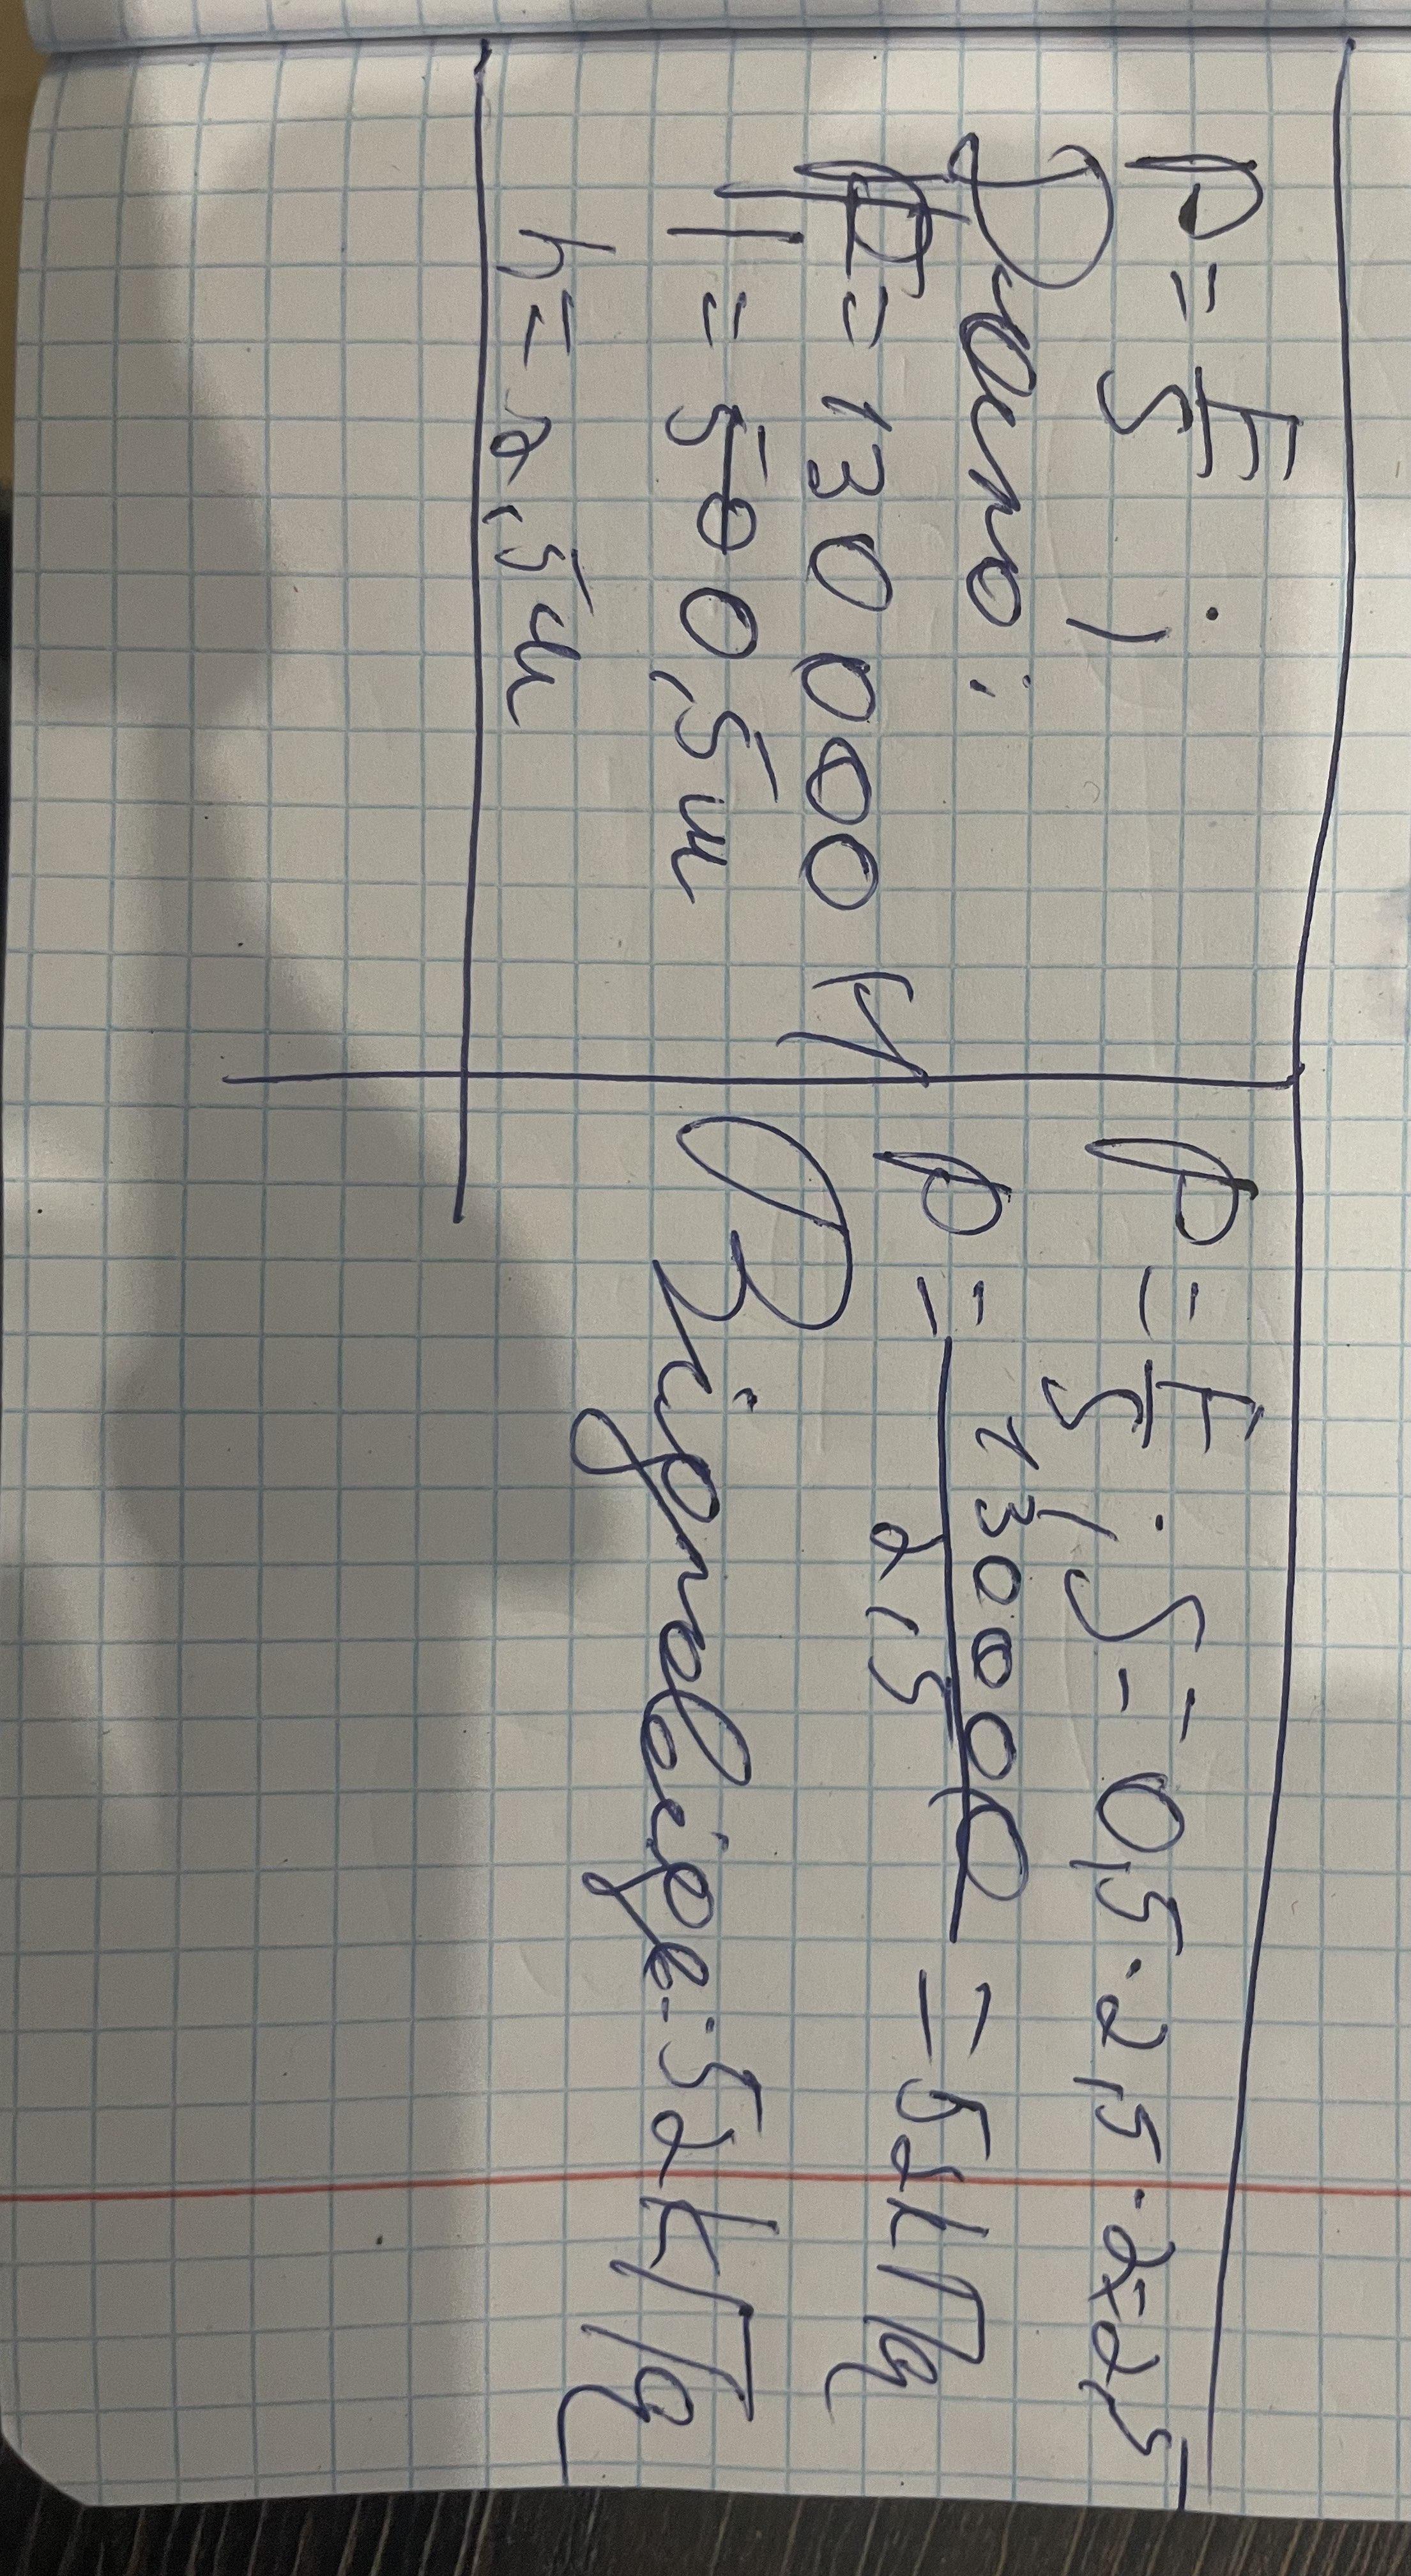 P = F/S ;
Дано:
F = 130 000 Н
l = 0,5м
h = 2,5м
P = F/S ; S = 0,5 · 2,5 · 2 = 2,5
P = 130000/2,5 = 52кПа
Відповідь: 52кПа